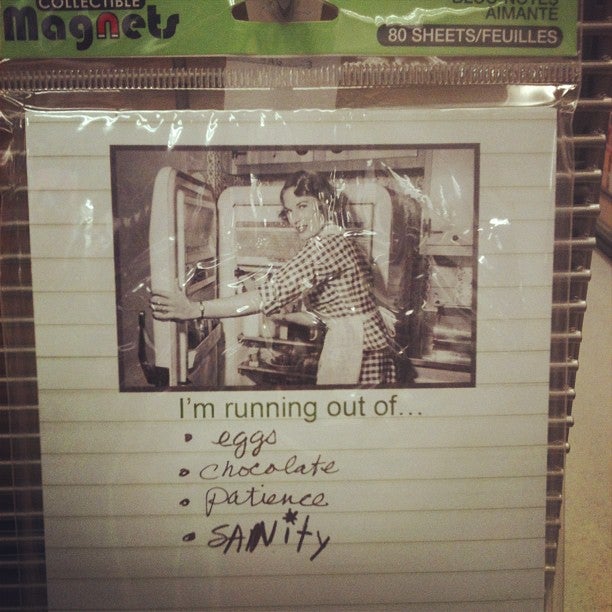 COLLECTIBLE
Magnets
BLOC-NOTES
AIMANTÉ
80 SHEETS/FEUILLES
I'm running out of...
• eggs
• chocolate
• patience
• SANity